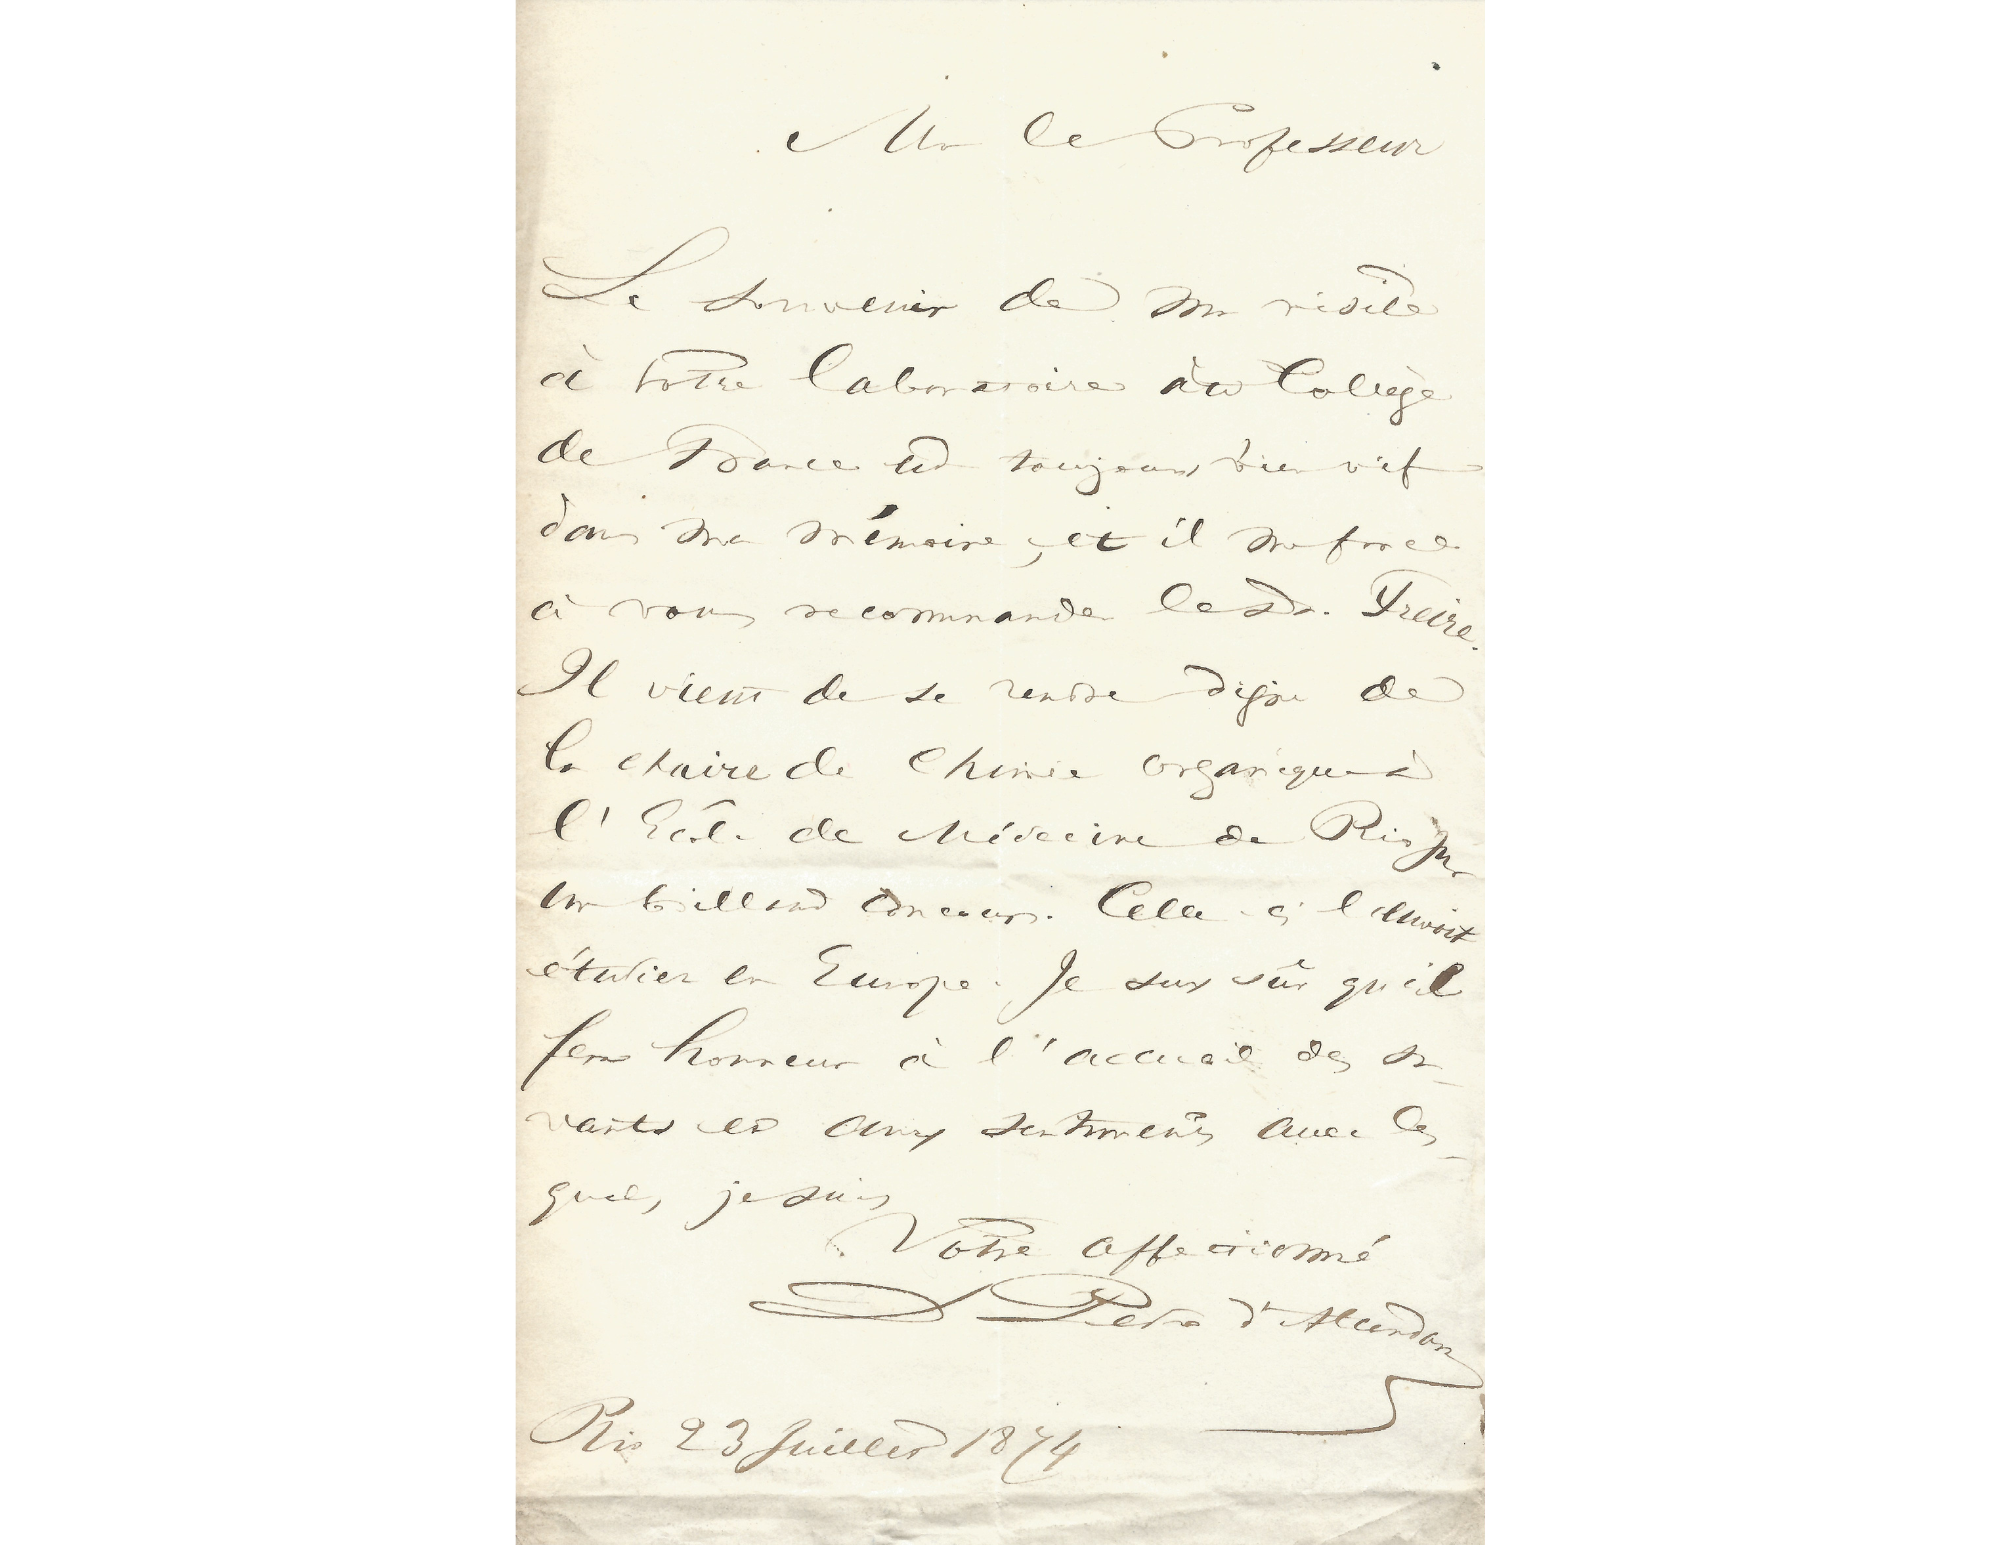 Mr le Professeur
Le souvenir de ma visite
à votre laboratoire au Collège
de France est toujours bien vif
dans ma mémoire, et il me force
à vous recommander le Dr. Freire.
Il vient de se rendre digne de
la chaire de Chimie organique à
l'École de Médecine de Rio par
un brillant concours. Celle-ci l'envoit
étudier en Europe. Je suis sûr qu'il
fera honneur à l'accueil des sa-
vants et aux sentiments avec les-
quels, je suis
Votre affectionné
D. Pedro d'Alcantara
Rio 23 Juillet 1874